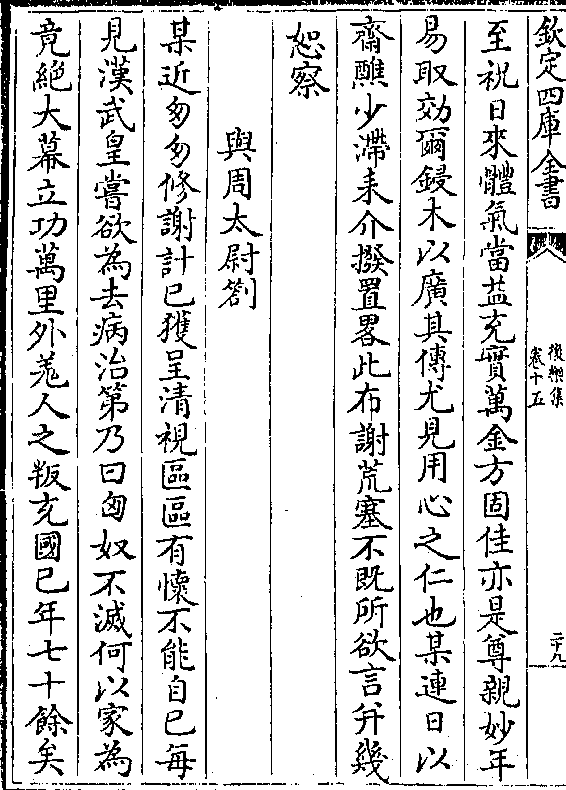 欽定四庫全書
後樂集
卷十五
二十九
至祝日來體氣當益充實萬金方固佳亦是尊親妙年
易取効爾鋟木以廣其傳尤見用心之仁也某連日以
齋醮少滯耒介撥置畧此布謝荒塞不既所欲言幷幾
恕察
與周太尉劄
某近匆匆修謝計已獲呈清視區區有懷不能自已每
見漢武皇嘗欲為去病治第乃曰匈奴不滅何以家為
竟絕大幕立功萬里外羌人之叛充國已年七十餘矣